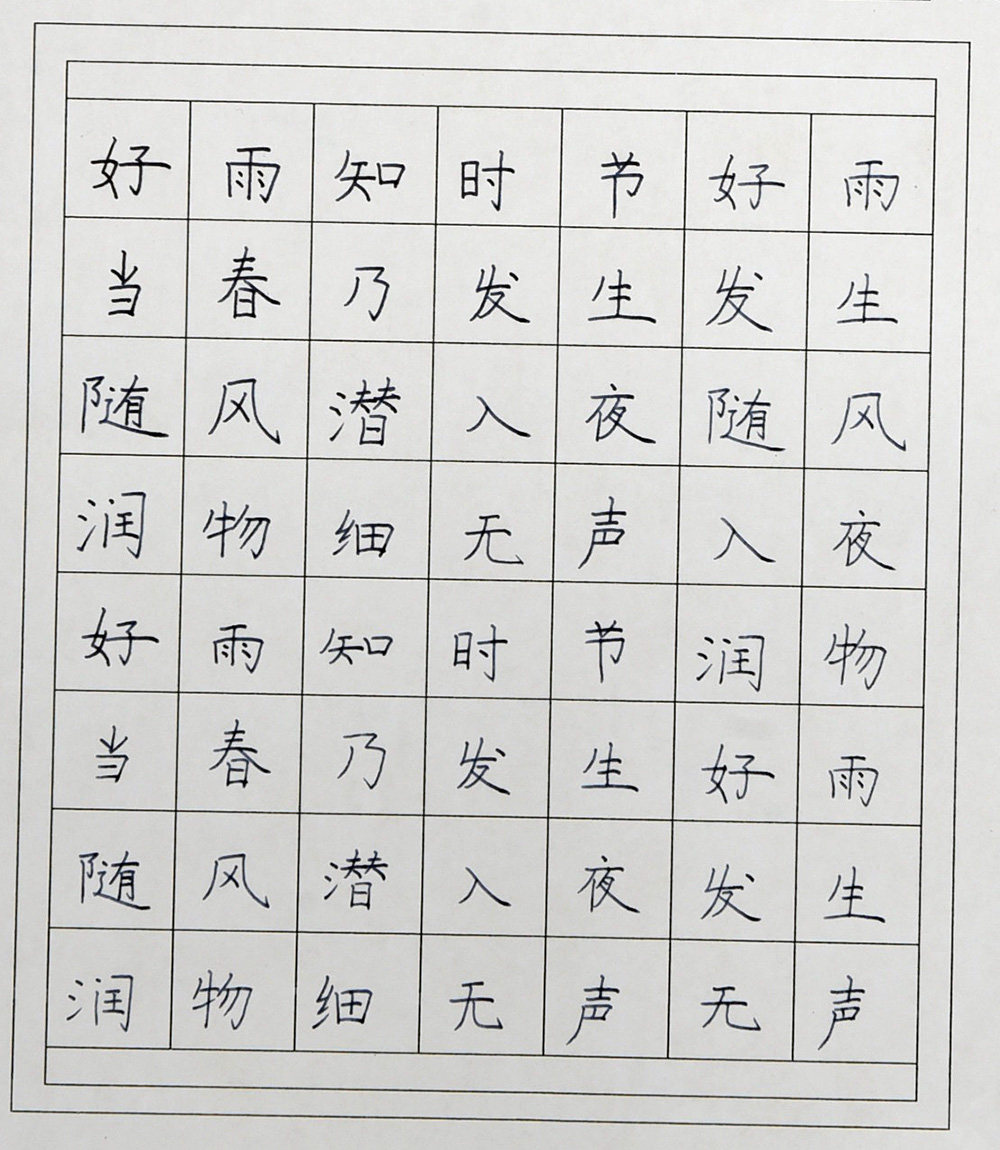 好雨知时节好雨
当春乃发生发生
随风潜入夜随风
润物细无声入夜
好雨知时节润物
当春乃发生好雨
随风潜入夜发生
润物细无声无声